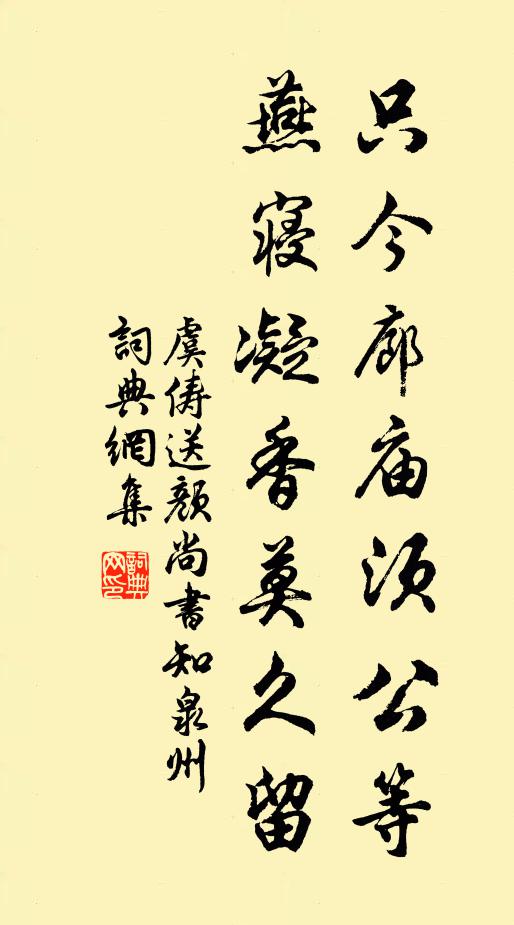 只今廊庙须公等
燕寝凝香莫久留
虞俦送颜尚書知泉州
詞典網集
詞典
网印